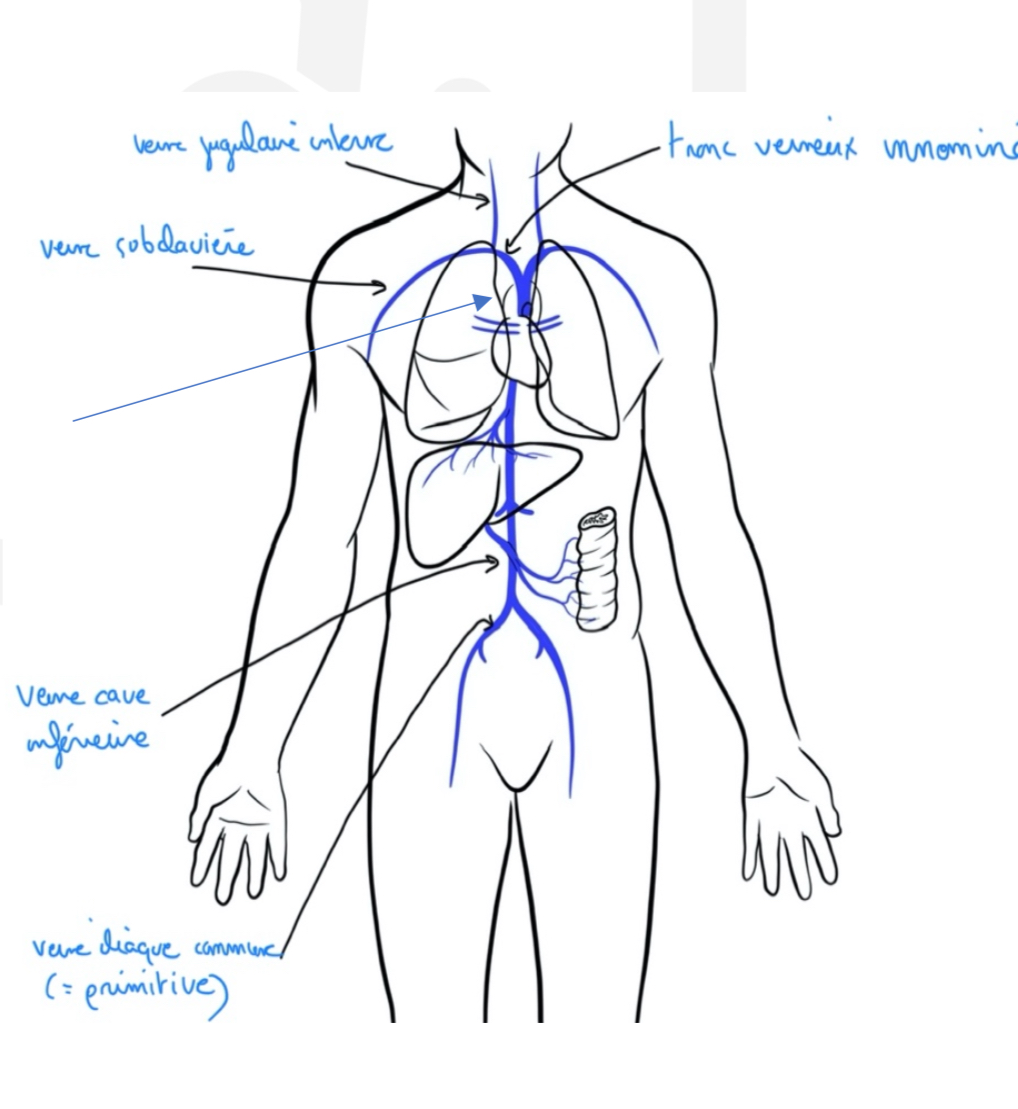 veine jugulaire interne
tronc veineux innominé
veine subclavière
veine cave
inférieure
veine iliaque commune
(= primitive)